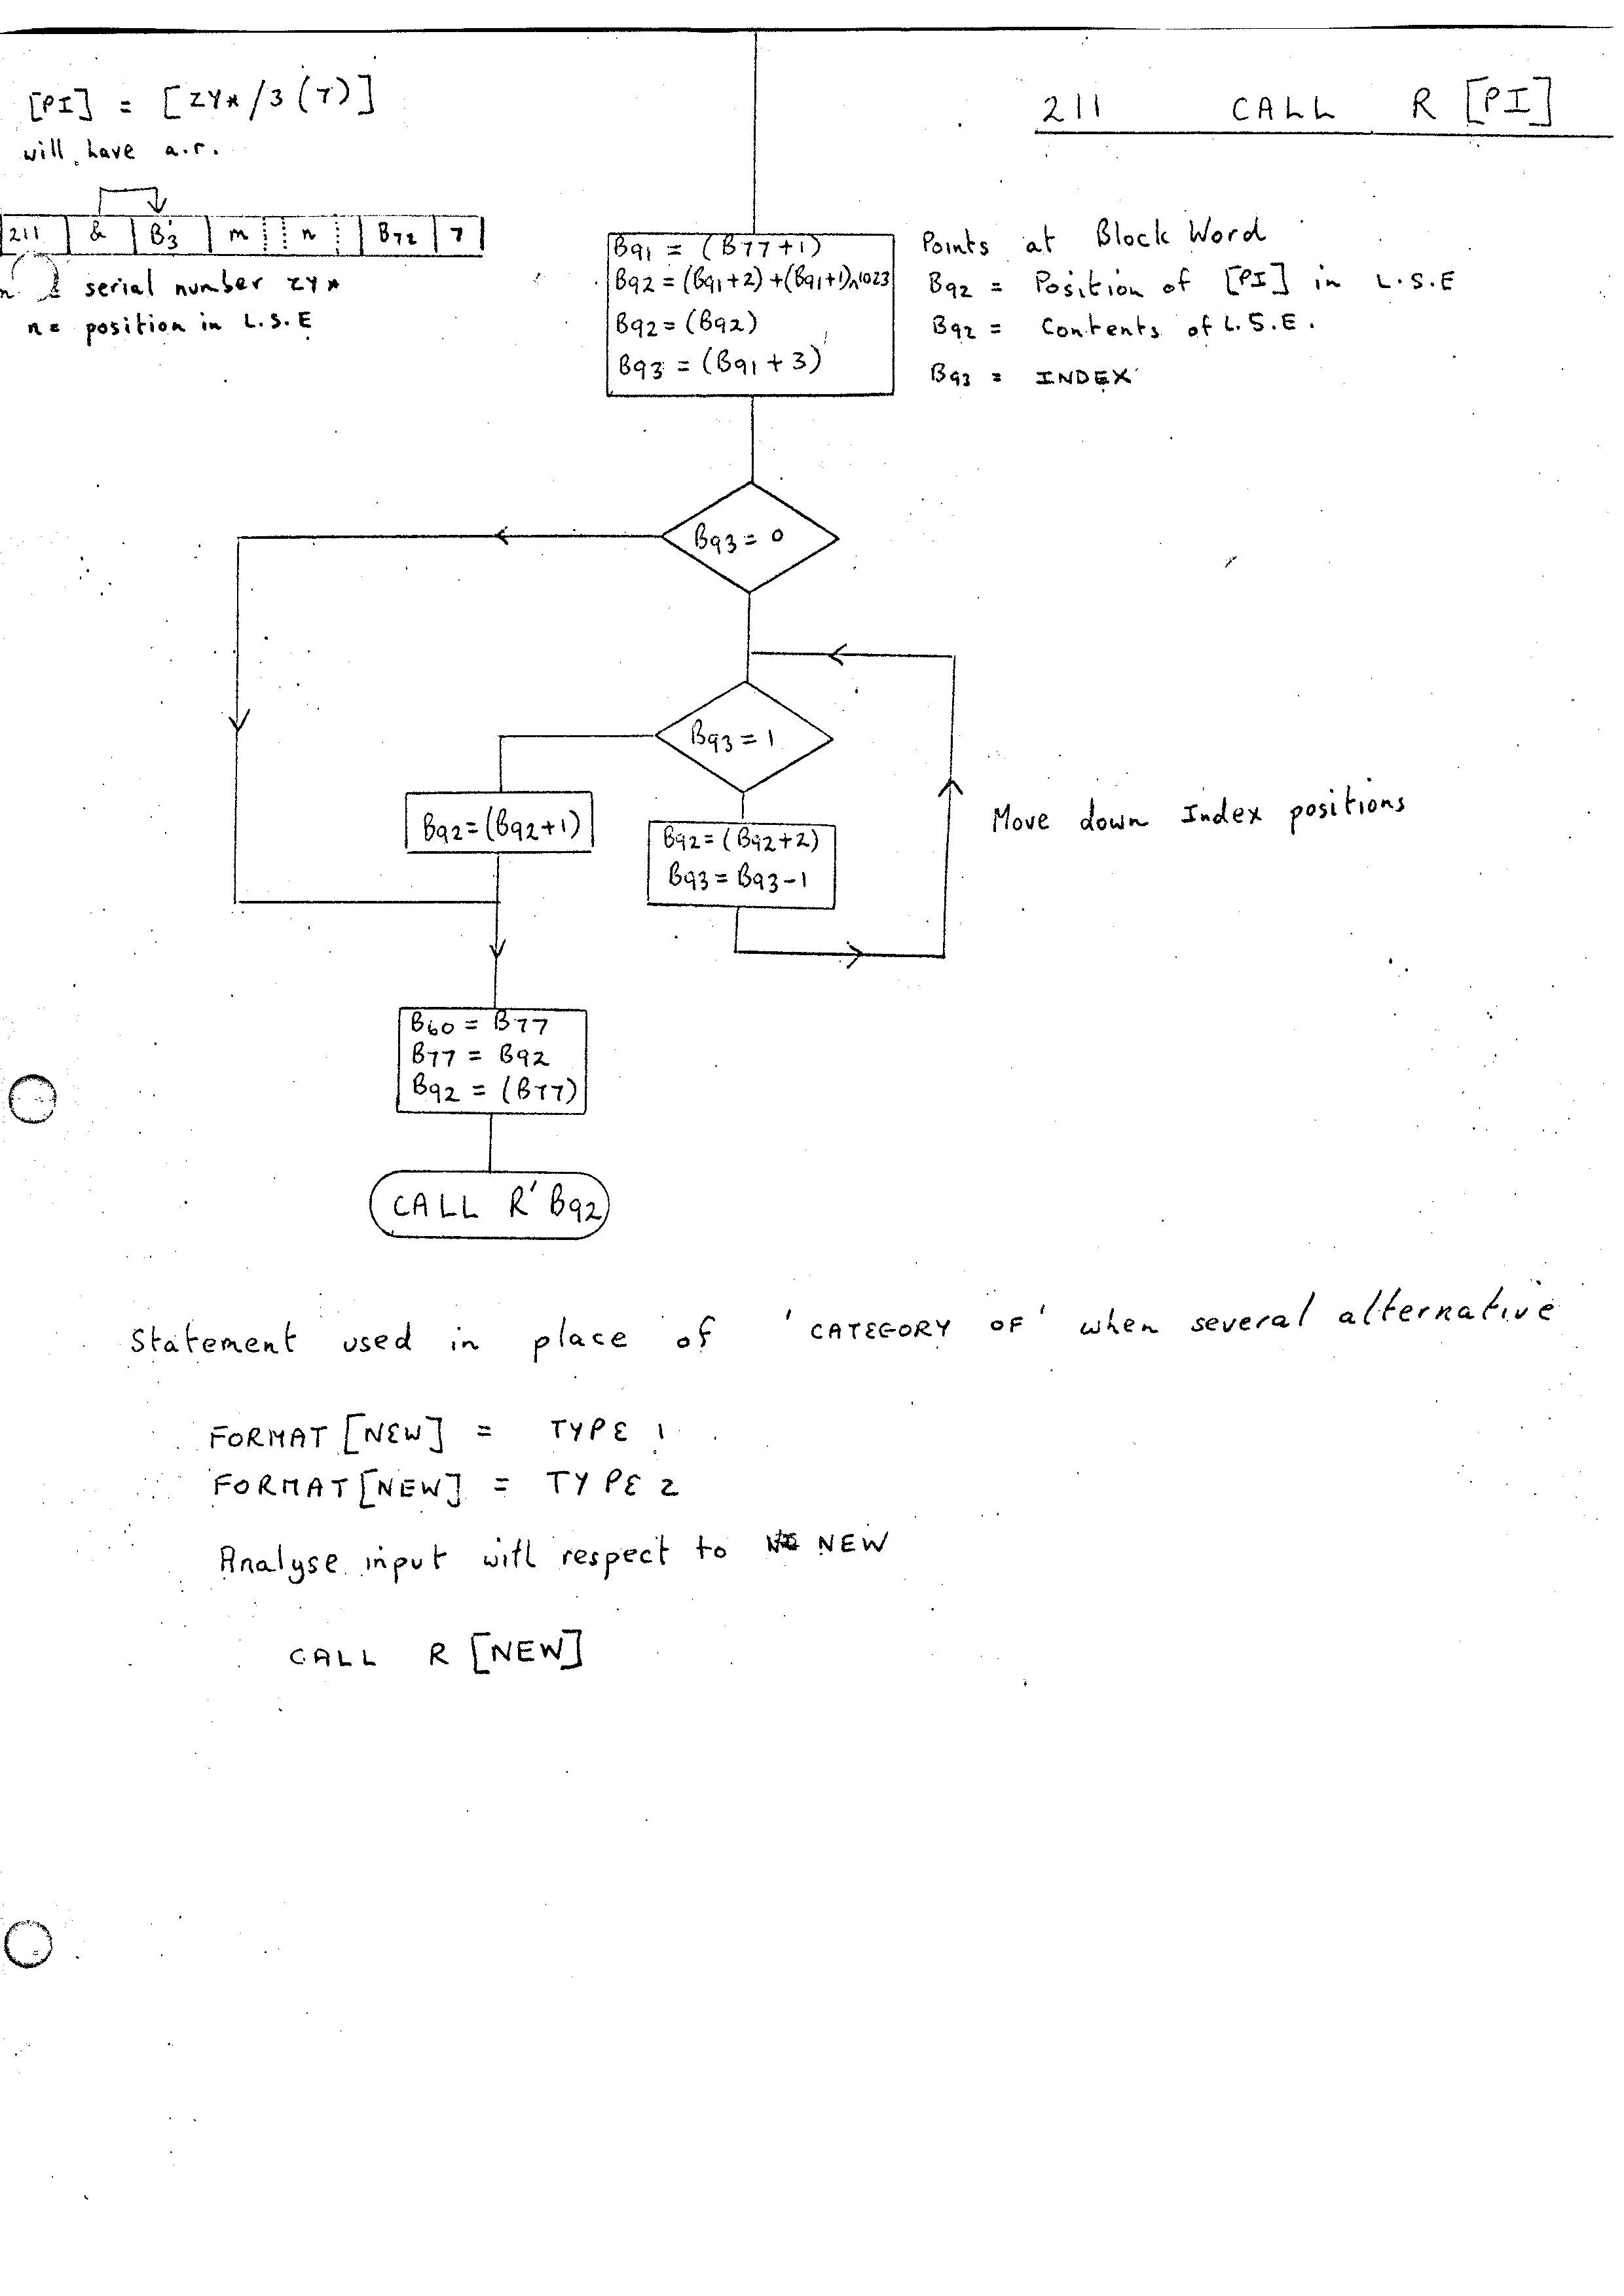 [PI] = [ZY*/3(7)]
will have a.r.
211 CALL R [PI]
211 & B'3 m n B72 7
serial number ZY*
n = position in L.S.E
B91 = (B77+1)
B92 = (B91+2)+(B91+1)∧1023
B92 = (B92)
B93 = (B91+3)
Points at Block Word
B92 = Position of [PI] in L.S.E
B92 = Contents of L.S.E.
B93 = INDEX
B93 = 0
B93 = 1
B92=(B92+1)
B92=(B92+2)
B93=B93-1
Move down Index positions
B60 = B77
B77 = B92
B92 = (B77)
CALL R' B92
Statement used in place of 'CATEGORY OF' when several alternative
FORMAT [NEW] = TYPE 1
FORMAT [NEW] = TYPE 2
Analyse input with respect to NEW
CALL R [NEW]